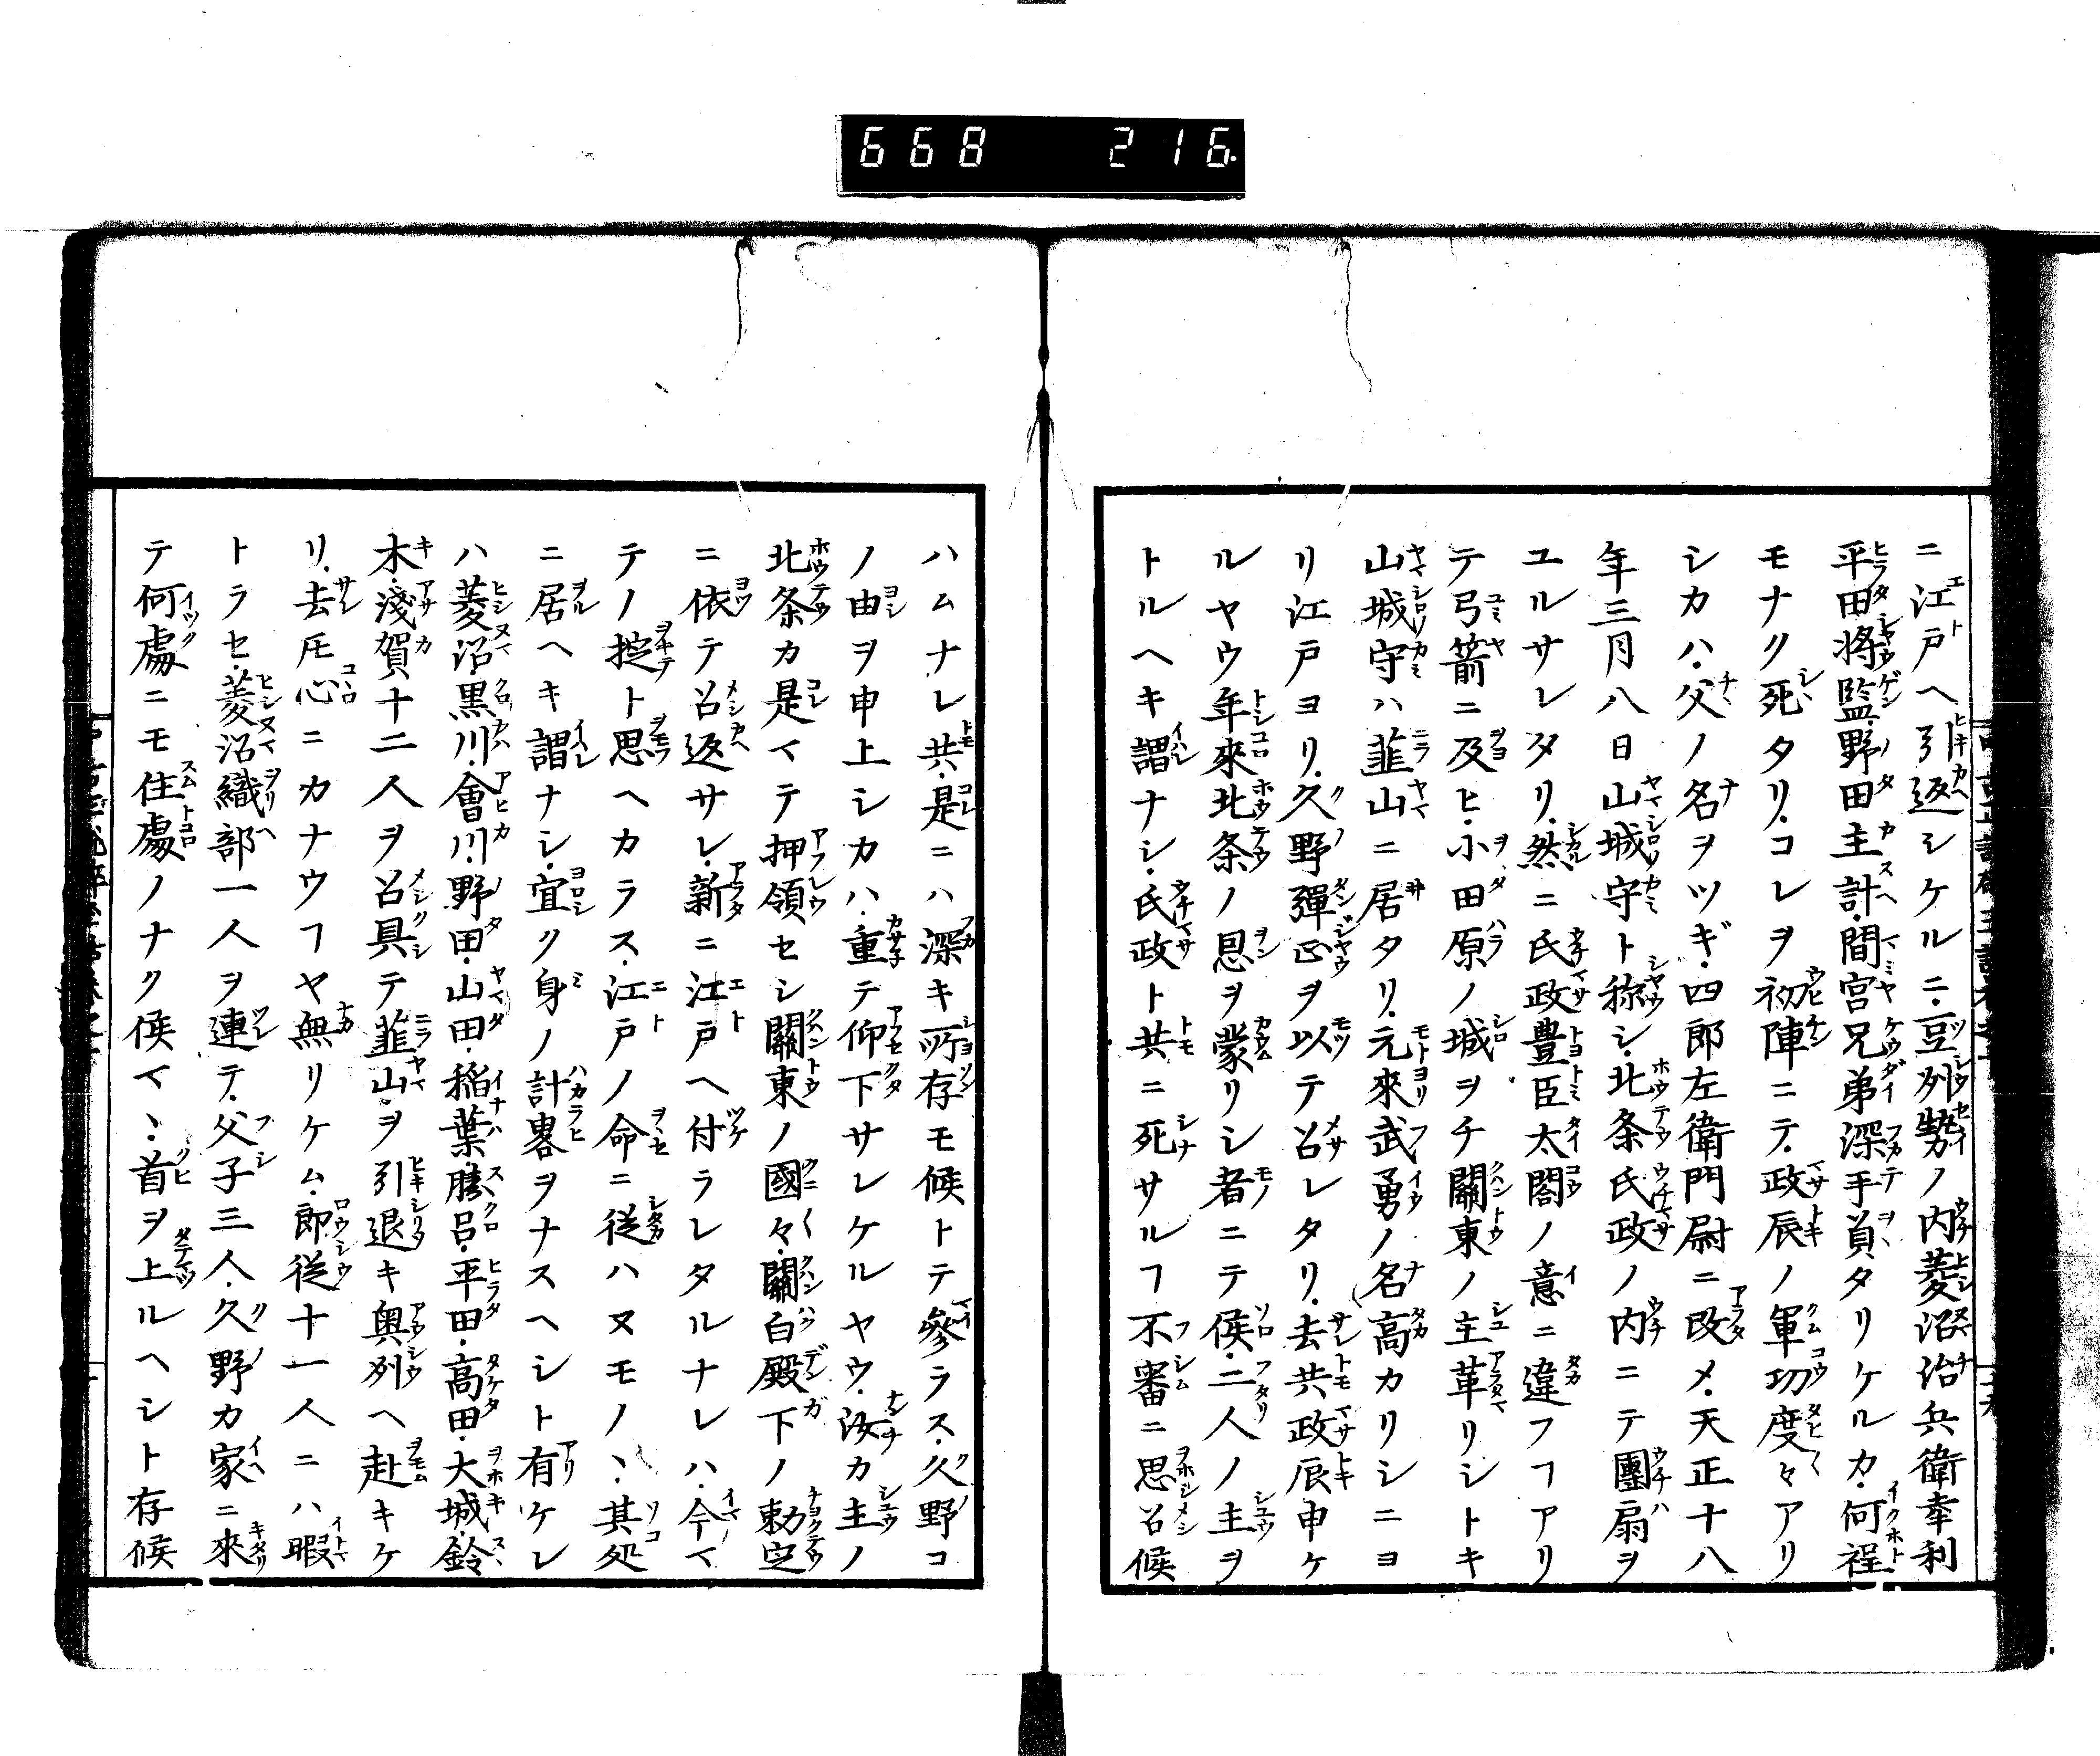 668 216
ニ江戸ヘ引返シケルニ豆州勢ノ内菱沼治兵衛幸利
平田將監野田主計間宮兄弟深手負タリケルカ何程
モナク死タリコレヲ初陣ニテ政辰ノ軍功度々アリ
シカハ父ノ名ヲツギ四郎左衛門尉ニ改メ天正十八
年三月八日山城守ト称シ北条氏政ノ内ニテ團扇ヲ
ユルサレタリ然ニ氏政豊臣太閤ノ意ニ違フヿアリ
テ弓箭ニ及ヒ小田原ノ城ヲチ關東ノ主革リシトキ
山城守ハ韮山ニ居タリ元來武勇ノ名高カリシニヨ
リ江戸ヨリ久野彈正ヲ以テ召レタリ去共政辰申ケ
ルヤウ年來北条ノ恩ヲ蒙リシ者ニテ候二人ノ主ヲ
トルヘキ謂ナシ氏政ト共ニ死サルヿ不審ニ思召候
ハムナレ共是ニハ深キ所存モ候トテ參ラス久野コ
ノ由ヲ申上シカハ重テ仰下サレケルヤウ汝カ主ノ
北条カ是マテ押領セシ關東ノ國々關白殿下ノ勅定
ニ依テ召返サレ新ニ江戸ヘ付ラレタルナレハ今マ
テノ掟ト思ヘカラス江戸ノ命ニ従ハヌモノヽ其処
ニ居ヘキ謂ナシ宜ク身ノ計畧ヲナスヘシト有ケレ
ハ菱沼黒川會川野田山田稲葉勝呂平田高田大城鈴
木淺賀十二人ヲ召具テ韮山ヲ引退キ奥州ヘ赴キケ
リ去𪜈心ニカナウヿヤ無リケム郎従十一人ニハ暇
トラセ菱沼織部一人ヲ連テ父子三人久野カ家ニ來
テ何處ニモ住處ノナク候マヽ首ヲ上ルヘシト存候